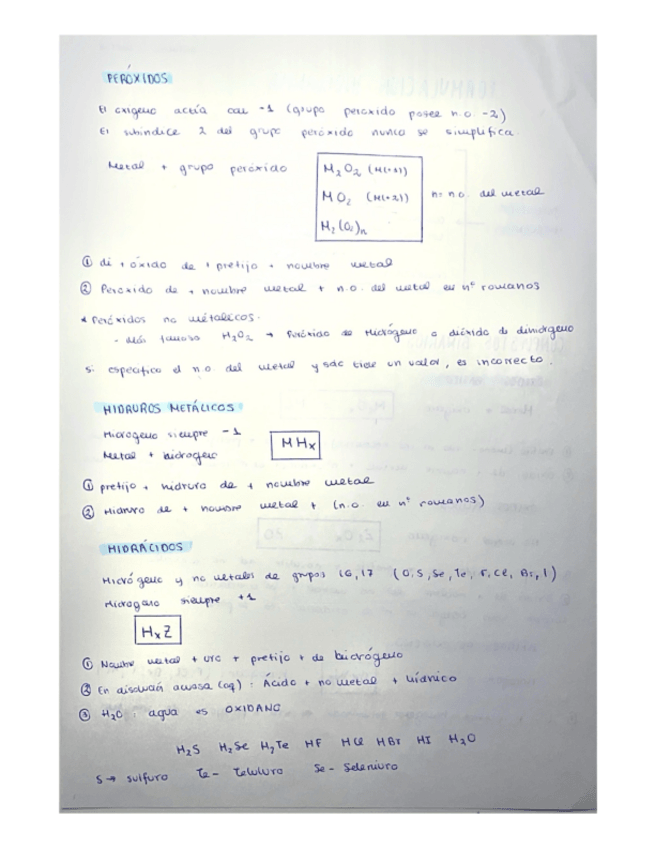 PERÓXIDOS
El oxígeno actúa con -1 (grupo peroxido posee n.o. -2)
El subíndice 2 del grupo peróxido nunca se simplifica.
Metal + grupo peróxido
M₂O₂ (M(+1))
MO₂ (M(+2))
M₂(O₂)n
n = n.o. del metal
① di + óxido de + prefijo + nombre metal
② Peróxido de + nombre metal + n.o. del metal en nº romanos
* Peróxidos no metálicos.
- Más famoso H₂O₂ → Peróxido de Hidrógeno o dióxido de dihidrógeno
Si especifico el n.o del metal y solo tiene un valor, es incorrecto.
HIDRUROS METÁLICOS
Hidrogeno siempre -1
Metal + hidrogeno
MHx
① prefijo + hidruro de + nombre metal
② Hidruro de + nombre metal + (n.o. en nº romanos)
HIDRÁCIDOS
Hidrógeno y no metales de grupos 16, 17 (O, S, Se, Te, F, Cl, Br, I)
Hidrogeno siempre +1
HxZ
① Nombre metal + uro + prefijo + de hidrógeno
② En disolución acuosa (aq) : Ácido + no metal + hídrico
③ H₂O : agua es OXIDANO
H₂S H₂Se H₂Te HF HCl HBr HI H₂O
S → sulfuro Te - Teluluro Se - Seleniuro